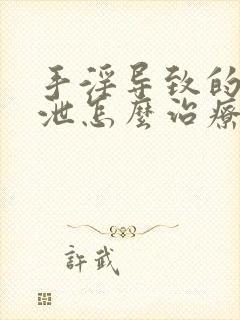 手淫导致的
泄怎麼治療
許武